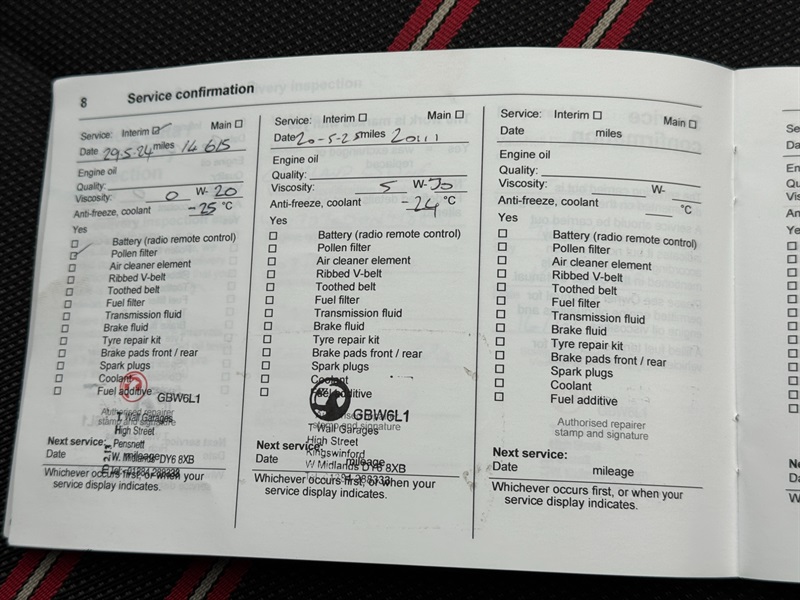 8 Service confirmation
Service: Interim Main
Date 29-5-24 miles 14615
Engine oil
Quality:
Viscosity: 0 W- 20
Anti-freeze, coolant -25 °C
Yes
Battery (radio remote control)
Pollen filter
Air cleaner element
Ribbed V-belt
Toothed belt
Fuel filter
Transmission fluid
Brake fluid
Tyre repair kit
Brake pads front / rear
Spark plugs
Coolant
Fuel additive
GBW6L1
Authorised repairer
stamp and signature
T Wall Garages
High Street
Pensnett
W. Midlands DY6 8XB
Next service:
Date
Whichever occurs first, or when your
service display indicates.
Service: Interim Main
Date 20-5-25 miles 20111
Engine oil
Quality:
Viscosity: 5 W- 30
Anti-freeze, coolant -24 °C
Yes
Battery (radio remote control)
Pollen filter
Air cleaner element
Ribbed V-belt
Toothed belt
Fuel filter
Transmission fluid
Brake fluid
Tyre repair kit
Brake pads front / rear
Spark plugs
Coolant
Fuel additive
GBW6L1
stamp and signature
T Wall Garages
High Street
Kingswinford
W Midlands DY6 8XB
Next service:
Date mileage
Whichever occurs first, or when your
service display indicates.
Service: Interim Main
Date miles
Engine oil
Quality:
Viscosity: W-
Anti-freeze, coolant °C
Yes
Battery (radio remote control)
Pollen filter
Air cleaner element
Ribbed V-belt
Toothed belt
Fuel filter
Transmission fluid
Brake fluid
Tyre repair kit
Brake pads front / rear
Spark plugs
Coolant
Fuel additive
Authorised repairer
stamp and signature
Next service:
Date mileage
Whichever occurs first, or when your
service display indicates.